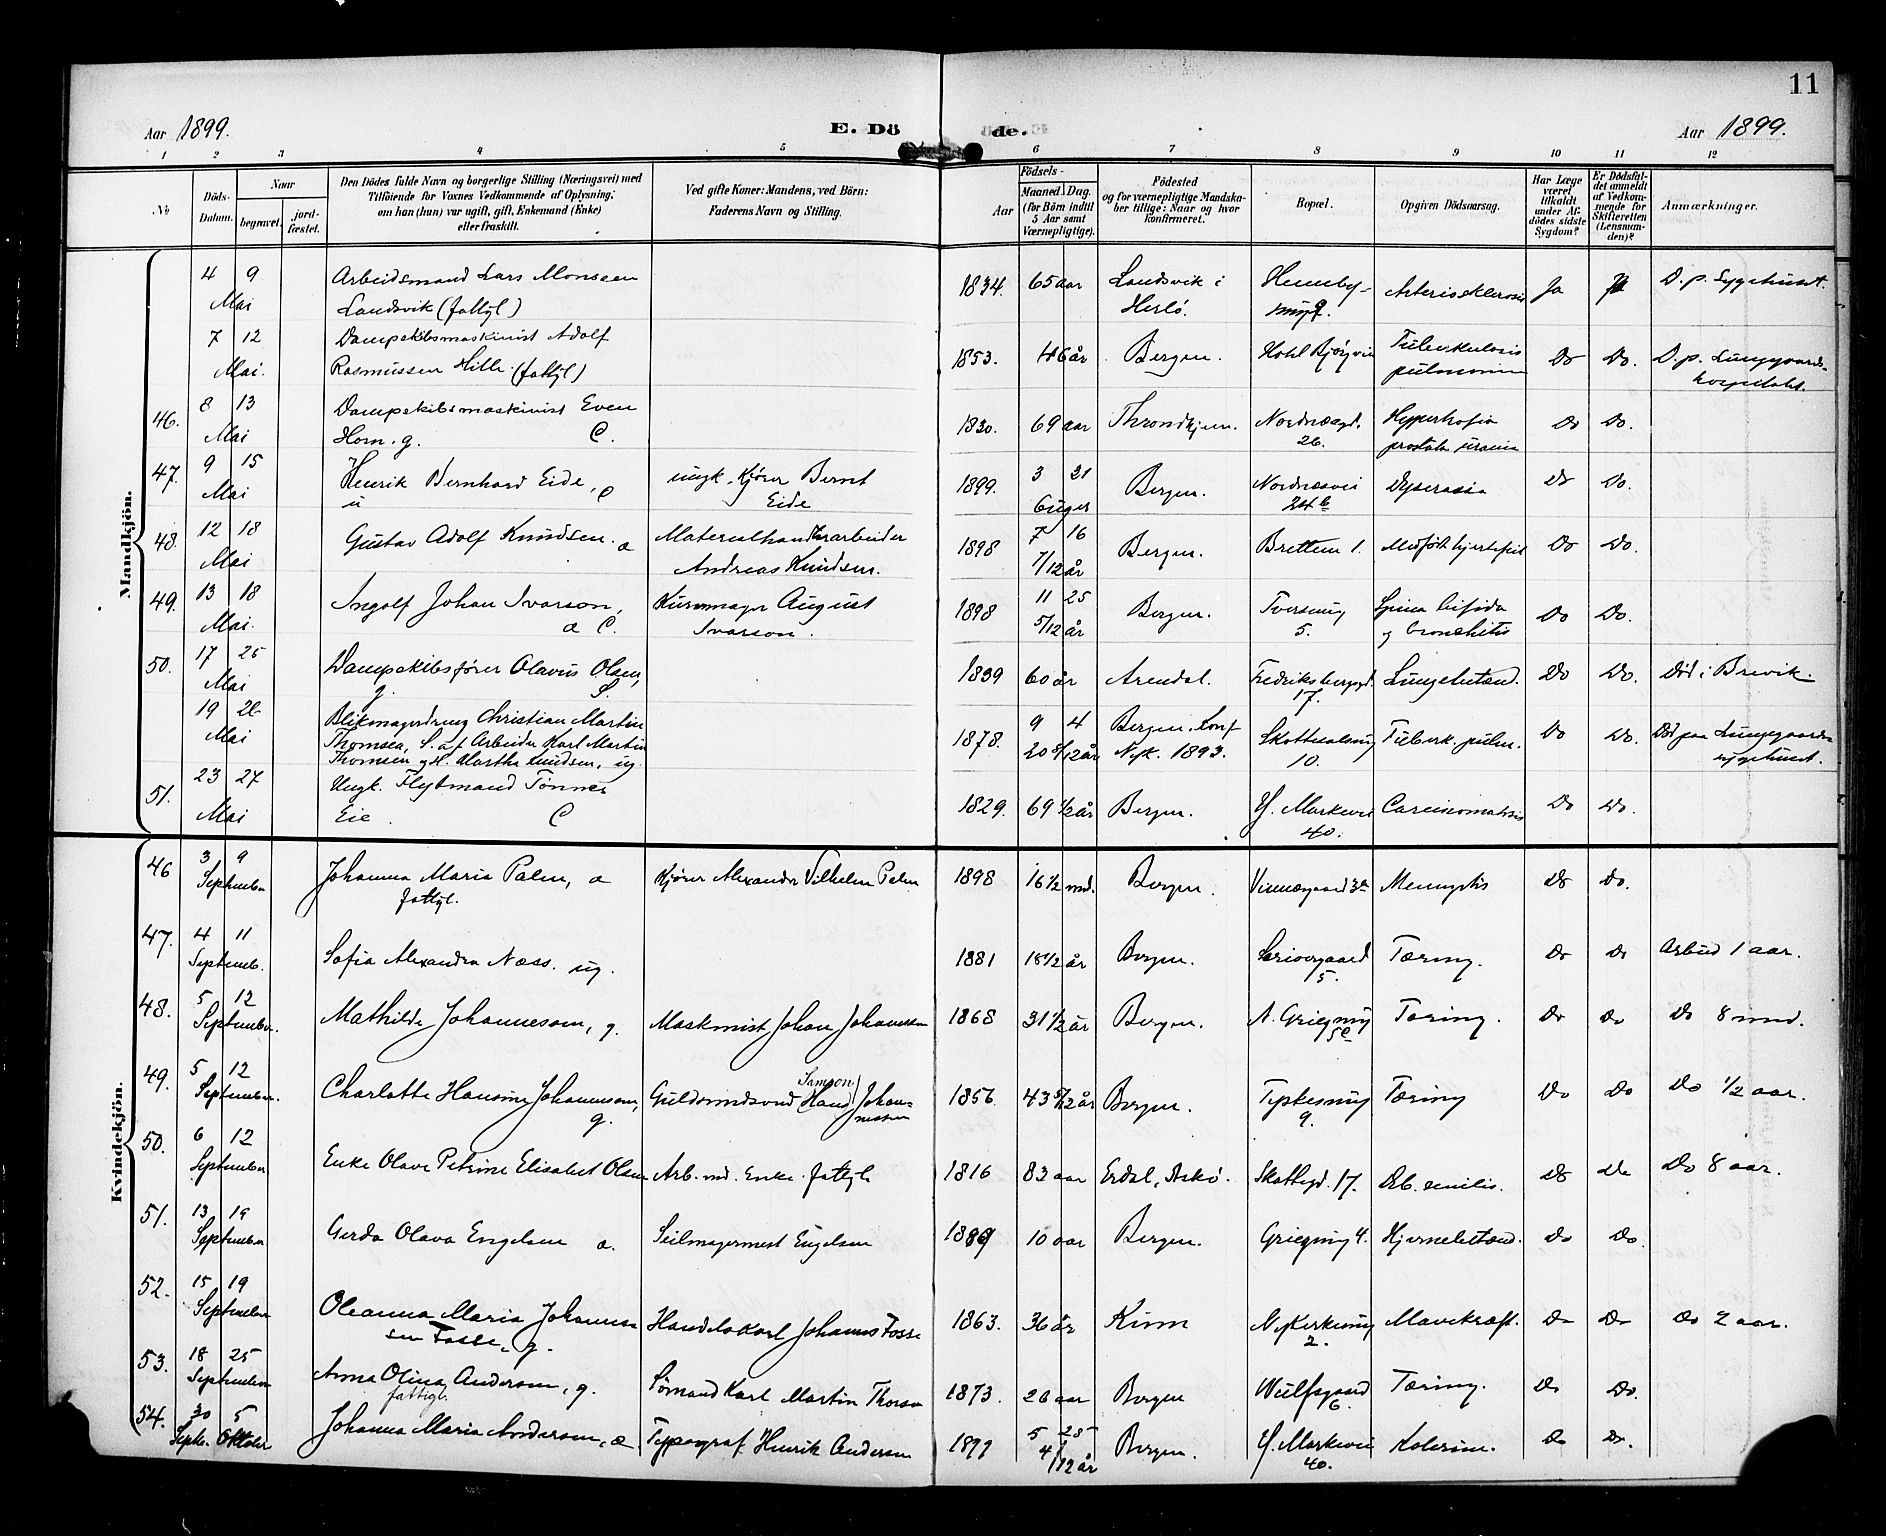 11
Aar 1899.
E. Dö
de.
Aar 1899.
1 2 3 4 5 6 7 8 9 10 11 12
No
Döds-
Datum.
Naar
begravet.
jord-
fæstet.
Den Dödes fulde Navn og borgerlige Stilling (Næringsvei) med
Tilföiende for Voxnes Vedkommende af Oplysning:
om han (hun) var ugift, gift, Enkemand (Enke)
eller fraskilt.
Ved gifte Koner: Mandens, ved Börn:
Faderens Navn og Stilling.
Födsels-
Aar
Maaned. Dag.
(for Börn indtil
5 Aar samt
Værnepligtige).
Födested
og for værnepligtige Mandska-
ber tillige: Naar og hvor
konfirmeret.
Bopæl.
Opgiven Dödsaarsag.
Har Læge
været
tilkaldt
under Af-
dödes sidste
Sygdom?
Er Dödsfal-
det anmeldt
af Vedkom-
mende for
Skifteretten
(Lensman-
den)?
Anmærkninger.
Mandkjön.
4 9 Arbeidsmand Lars Monsen 1834. 65 aar Landsvik i Ja D. p. Sygehuset.
Mai Landsvik (fattgl) Herlø. Arteriosklerosis
7 12 Dampskibsmaskinist Adolf 1853. 46 år Bergen. Hotel Bjørgvin Tuberkulosis Do Do. D. p. Lungegaards-
Mai. Rasmussen Hille. (fattgl) pulmonum hospitalet.
46. 8 13 Dampskibsmaskinist Even 1830. 69 aar Throndhjem. Nordnæsgd. Hypertrofia Do Do.
Mai Horn. g. C. 26. prostata uræmia
47. 9 15 Henrik Bernhard Eide, C ungk. Kjører Bernt 1899. 3 21 Bergen. Nordnæsvei Dyscrasia Do Do.
Mai u Eide 6 uger 24 b
48. 12 18 Gustav Adolf Knudsen. a Materialhandlerarbeider 1898 7 16 Bergen. Brettem 1. Medfødt hjertefeil Do Do.
Mai Andreas Knudsen. 7/12 år
49. 13 18 Ingolf Johan Ivarson, Kurvmager August 1898 11 25 Bergen. Tversmug Spina bifida Do Do.
Mai. a C. Ivarson. 5/12 år 5. og bronchitis
50. 17 25 Dampskibsfører Olavus Olsen, 1839 60 år Arendal. Fredriksbergsgd. Lungebetænd. Do Do. Død i Brevik.
Mai g. S. 17.
19 26 Blikmagerdreng Christian Martin 9 4 Bergen. Konf
Mai Thomsen, S. af Arbeider Karl Martin 1878. 20 8/12 år Nyk. 1893. Skottesalmg Tuberk. pulm. Do Do. Død paa Lungegaards-
Thomsen og H. Marthe Knudsen, ug. 10. sygehuset.
51. 23 27 Ungk. Fløtmand Tønnes 1829. 69 1/2 år Bergen. Y. Markevei Carcinomatosis Do Do.
Mai Eie. C 40.
Kvindekjön.
46 3 9 Johanna Maria Palm, a Kjører Alexander Vilhelm Palm 1898 16 1/2 md. Bergen. Vinnægaard 3a Meningitis Do Do.
September fattgl.
47. 4 11 Sofia Alexandra Næss. ug. 1881 18 1/2 år Bergen. Tæring. Do Do Arbeid 1 aar.
Septemb. 5.
48. 5 12 Mathilde Johannessen, g. Maskinist Johan Johannessen 1868 31 1/2 år Bergen. A. Griegmug Tæring. Do Do Do 8 md.
September. 5c
49. 5 12 Charlotte Hansine Johannessen, Guldsmedsvend Samson Johan- 1856 43 5/12 år Bergen. Typkesmug Tæring Do Do Do 1/2 aar.
September. g. nessen 9.
50. 6 12 Enke Olave Petrine Elisabet Olsen Arb. md. Enke. fattgl 1816 83 aar Erdal, Askø. Skottegd. 17. Deb. senilis. Do Do Do 8 aar.
September
51. 13 19 Gerda Olava Engelsen a. Seilmagermest Engelsen 1889 10 aar Bergen. Griegmug 4. Hjernebetænd. Do Do
September
52. 15 19 Oleanna Maria Johannes- Handelskarl Johannes Fosse 1863. 36 år Kinn Nykirkemug Mavekræft. Do Do Do 2 aar.
September sen Fosse, g. 2.
53. 18 25 Anna Olina Andersen, g. Sømand Karl Martin Thorsen 1873 26 aar Bergen Wulfsgaard Tæring. Do Do.
September fattigl. 6.
54. 30 5 Johanna Maria Andersen, æ Typograf Henrik Andersen 1899 5 25 Bergen. Y. Markevei Kolerine. Do Do.
Septr. Oktober 4/12 år 40.